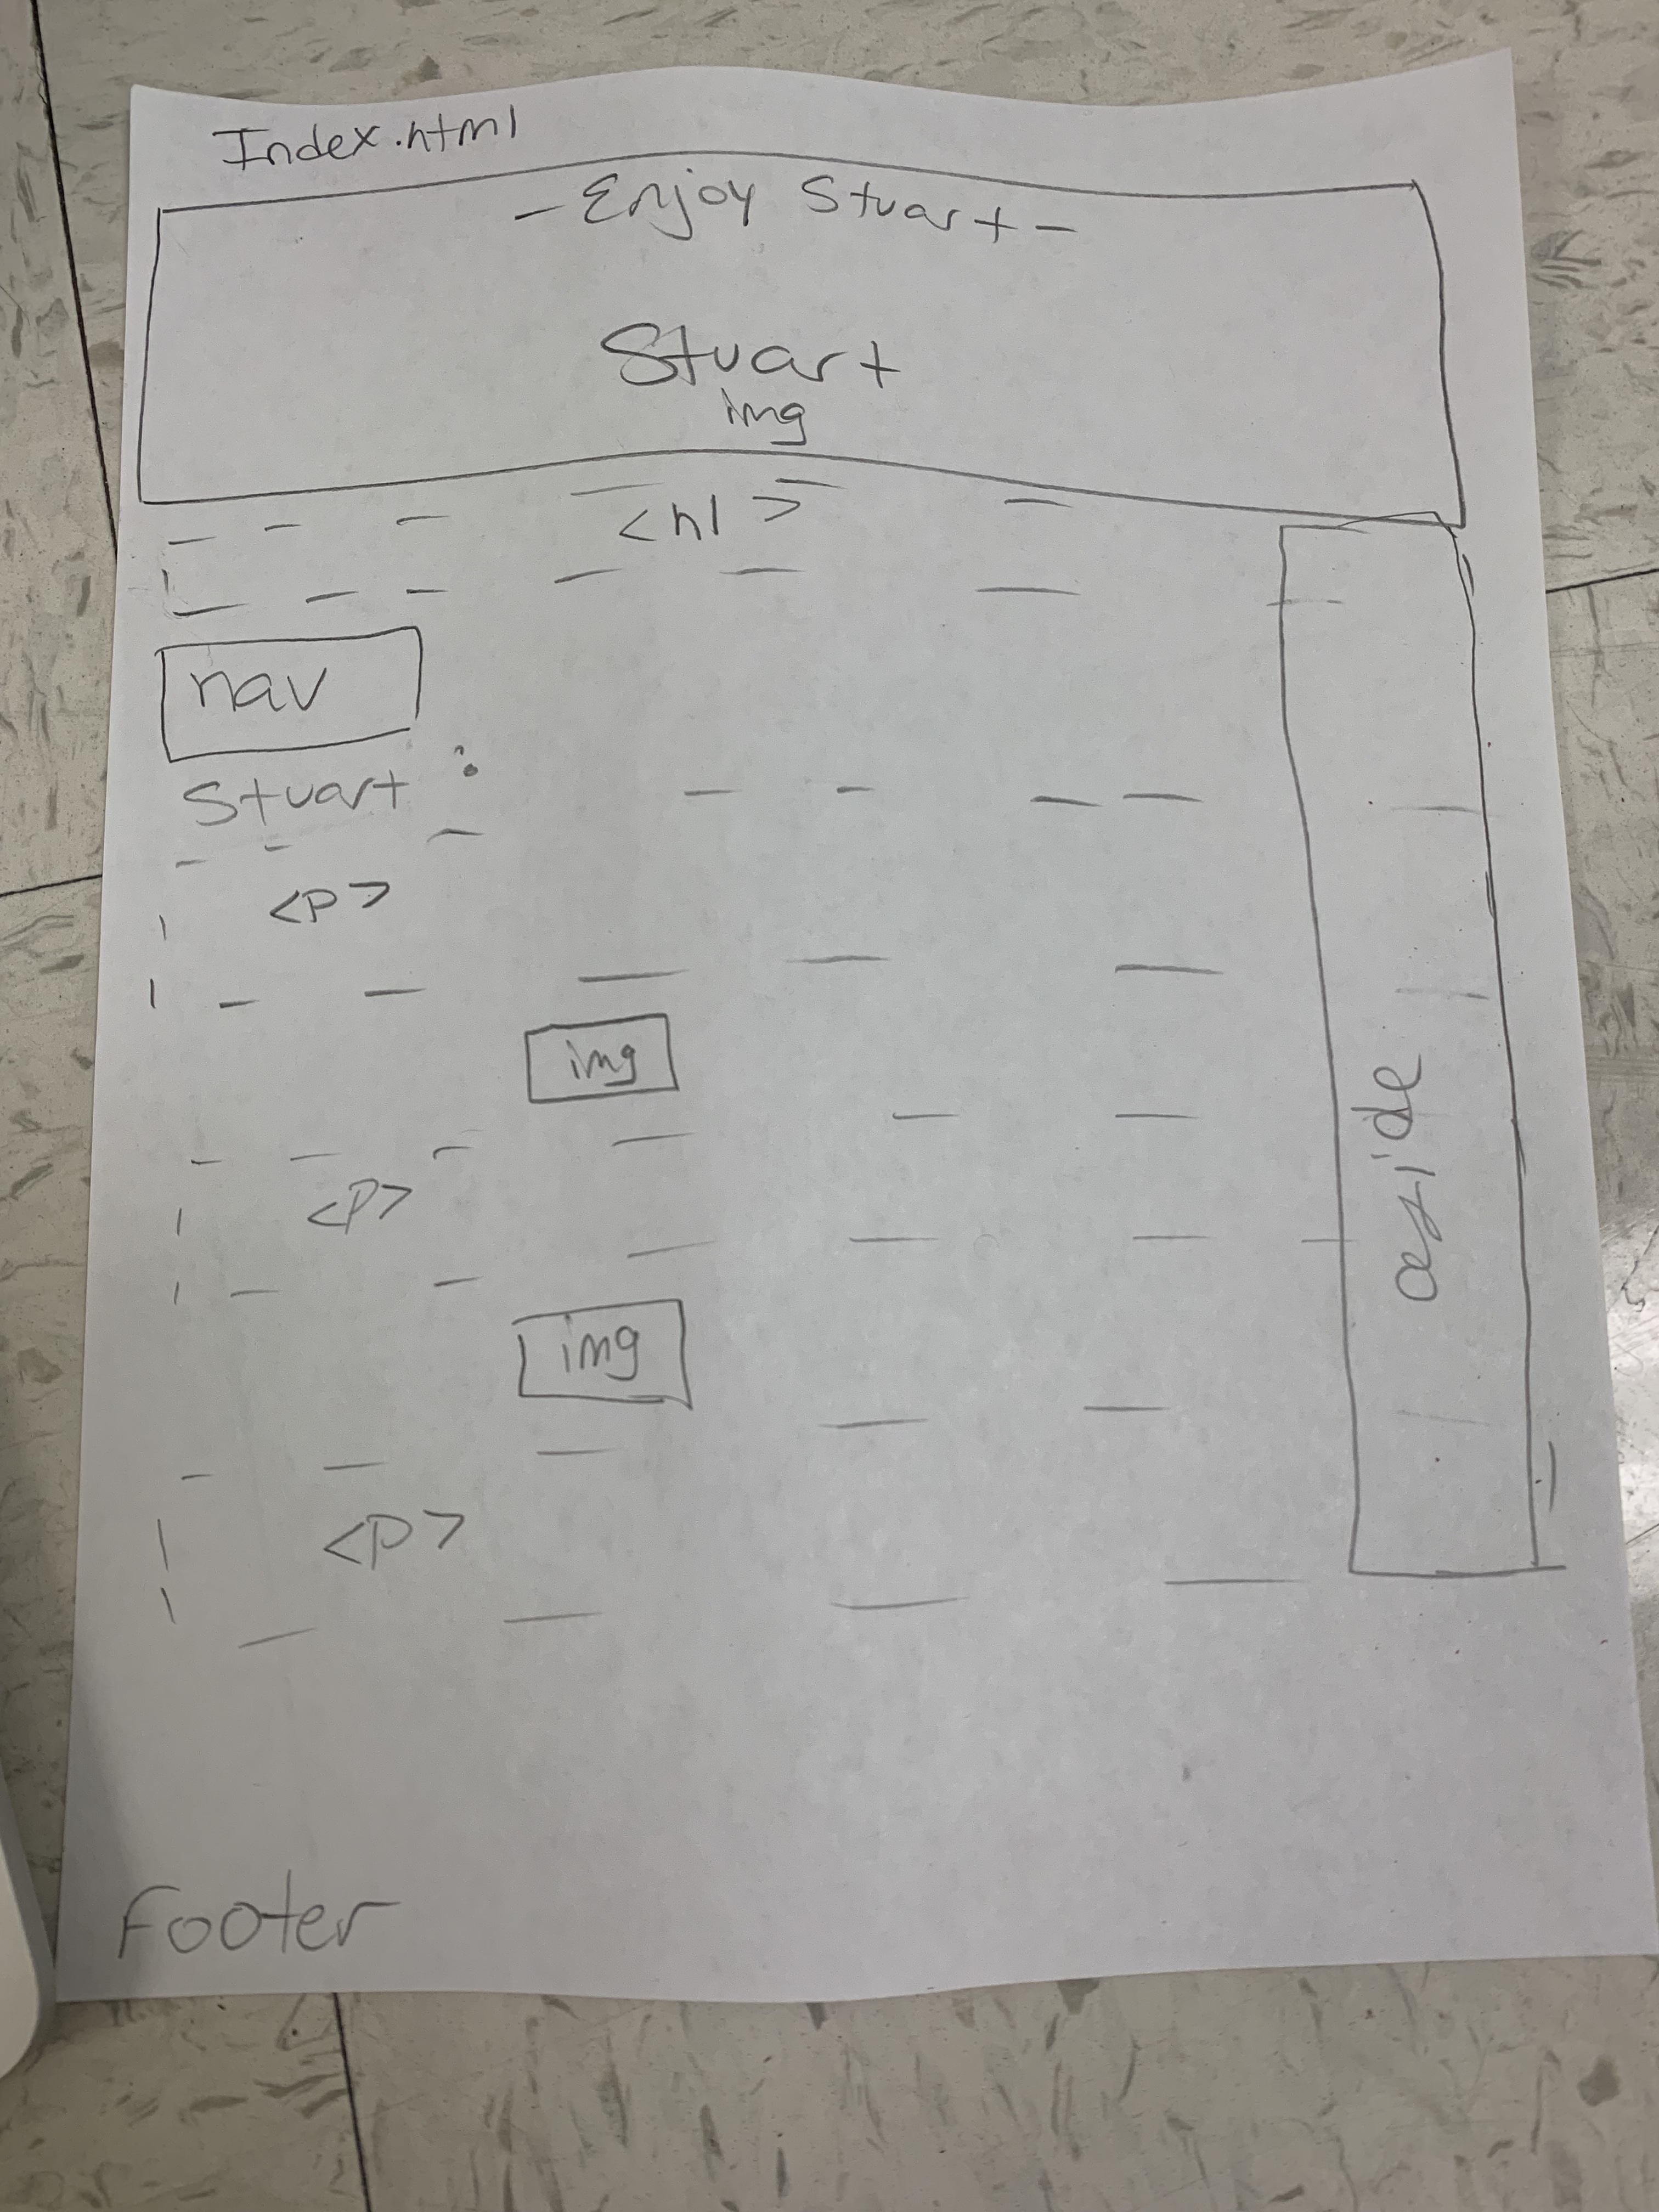 Index.html
- Enjoy Stuart -
Stuart
img
<h1>
nav
Stuart :
<p>
img
<p>
img
<p>
aside
Footer